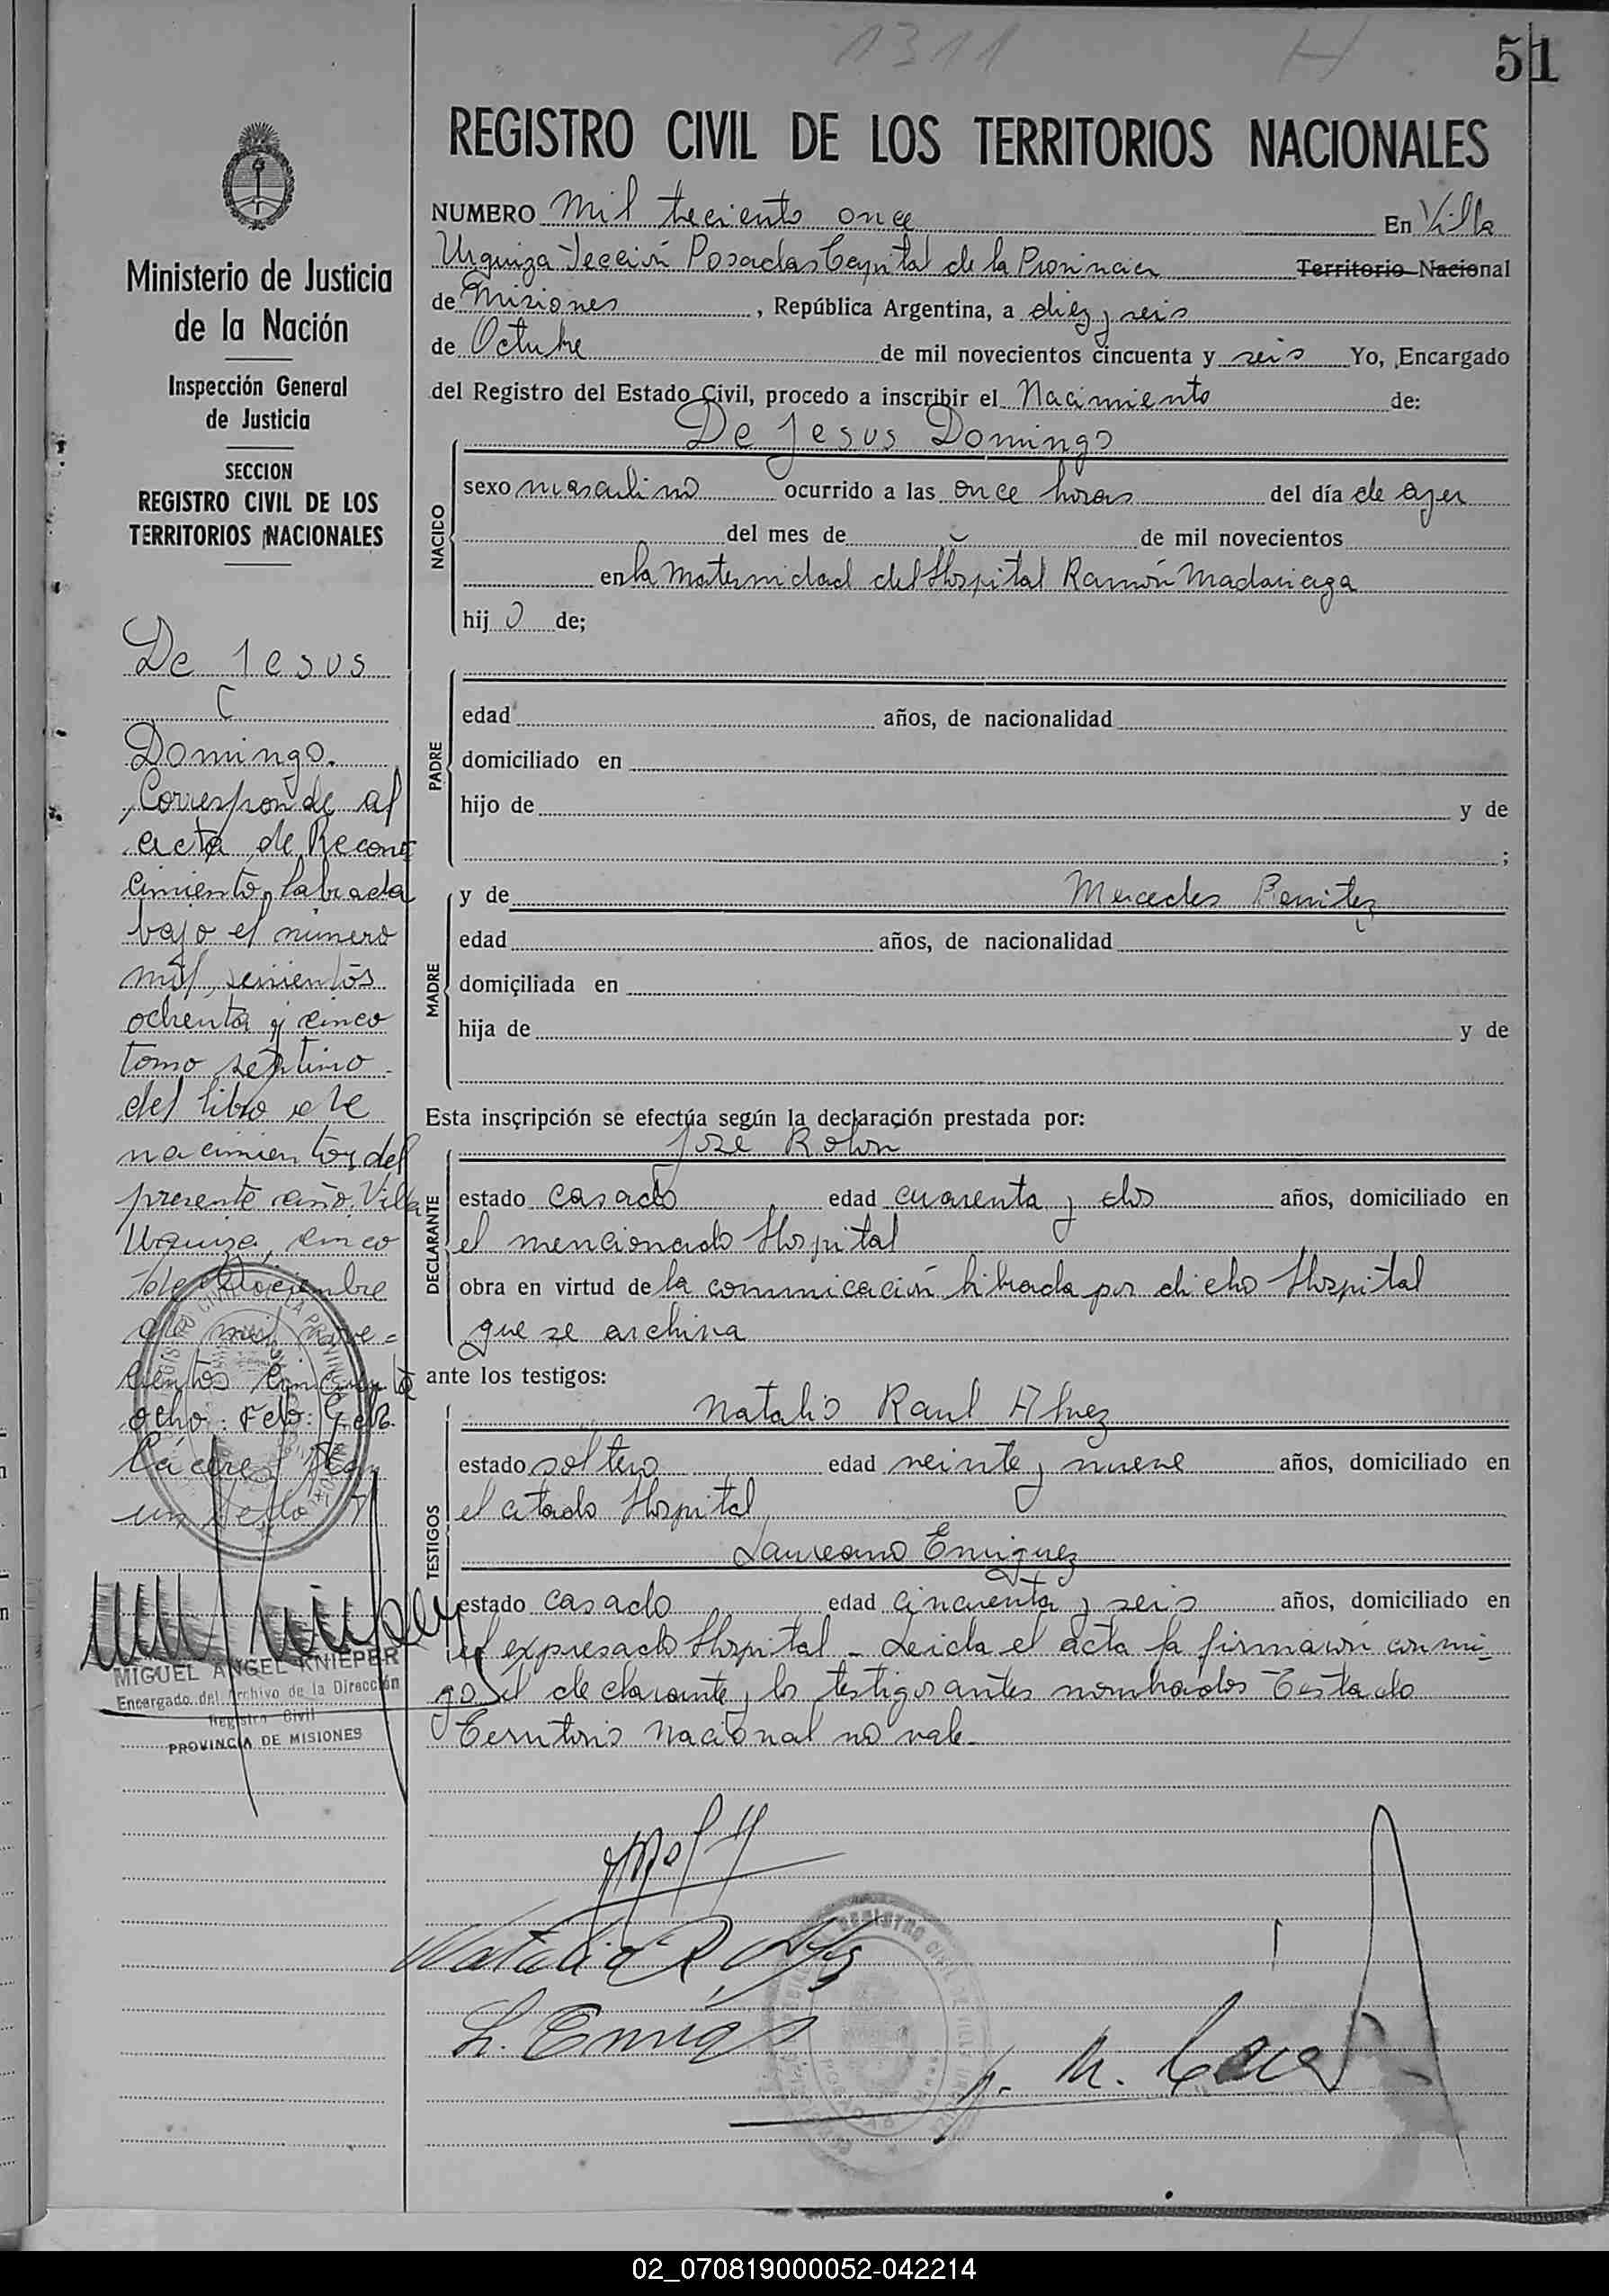 1311 H. 51
REGISTRO CIVIL DE LOS TERRITORIOS NACIONALES
NUMERO Mil treciento once En Villa
Urquiza Sección Posadas Capital de la Provincia Territorio Nacional
de Misiones, República Argentina, a diez y seis
de Octubre de mil novecientos cincuenta y seis Yo, Encargado
del Registro del Estado Civil, procedo a inscribir el Nacimiento de:
De Jesus Domingo
NACIDO
sexo masculino ocurrido a las once horas del día de ayer
del mes de de mil novecientos
en la Maternidad del Hospital Ramón Madariaga
hij o de;
PADRE
edad años, de nacionalidad
domiciliado en
hijo de y de
;
MADRE
y de Mercedes Benitez
edad años, de nacionalidad
domiciliada en
hija de y de
Esta inscripción se efectúa según la declaración prestada por:
José Rolon
DECLARANTE
estado casado edad cuarenta y dos años, domiciliado en
el mencionado Hospital
obra en virtud de la comunicación librada por dicho Hospital
que se archiva
ante los testigos:
TESTIGOS
Natalio Raul
estado soltero edad veinte y nueve años, domiciliado en
el citado Hospital
Laureano Enriquez
estado casado edad cincuenta y seis años, domiciliado en
el expresado Hospital - Leida el acta la firmaron conmi-
go el declarante y los testigos antes nombrados Testado
Territorio Nacional no vale.
Natalio R
L. Enriq
Ministerio de Justicia
de la Nación
Inspección General
de Justicia
SECCION
REGISTRO CIVIL DE LOS
TERRITORIOS NACIONALES
De Jesus
Domingo.
Corresponde al
acta de Recono
cimiento labrada
bajo el número
mil seicientos
ochenta y cinco
tomo séptimo
del libro de
nacimientos del
presente año. Villa
Urquiza, cinco
de Diciembre
de mil nove=
cientos cincuenta
ocho. Fdo:
Cáceres Hay
un sello
MIGUEL ANGEL KNIEPER
Encargado del Archivo de la Dirección
Registro Civil
PROVINCIA DE MISIONES
02_070819000052-042214